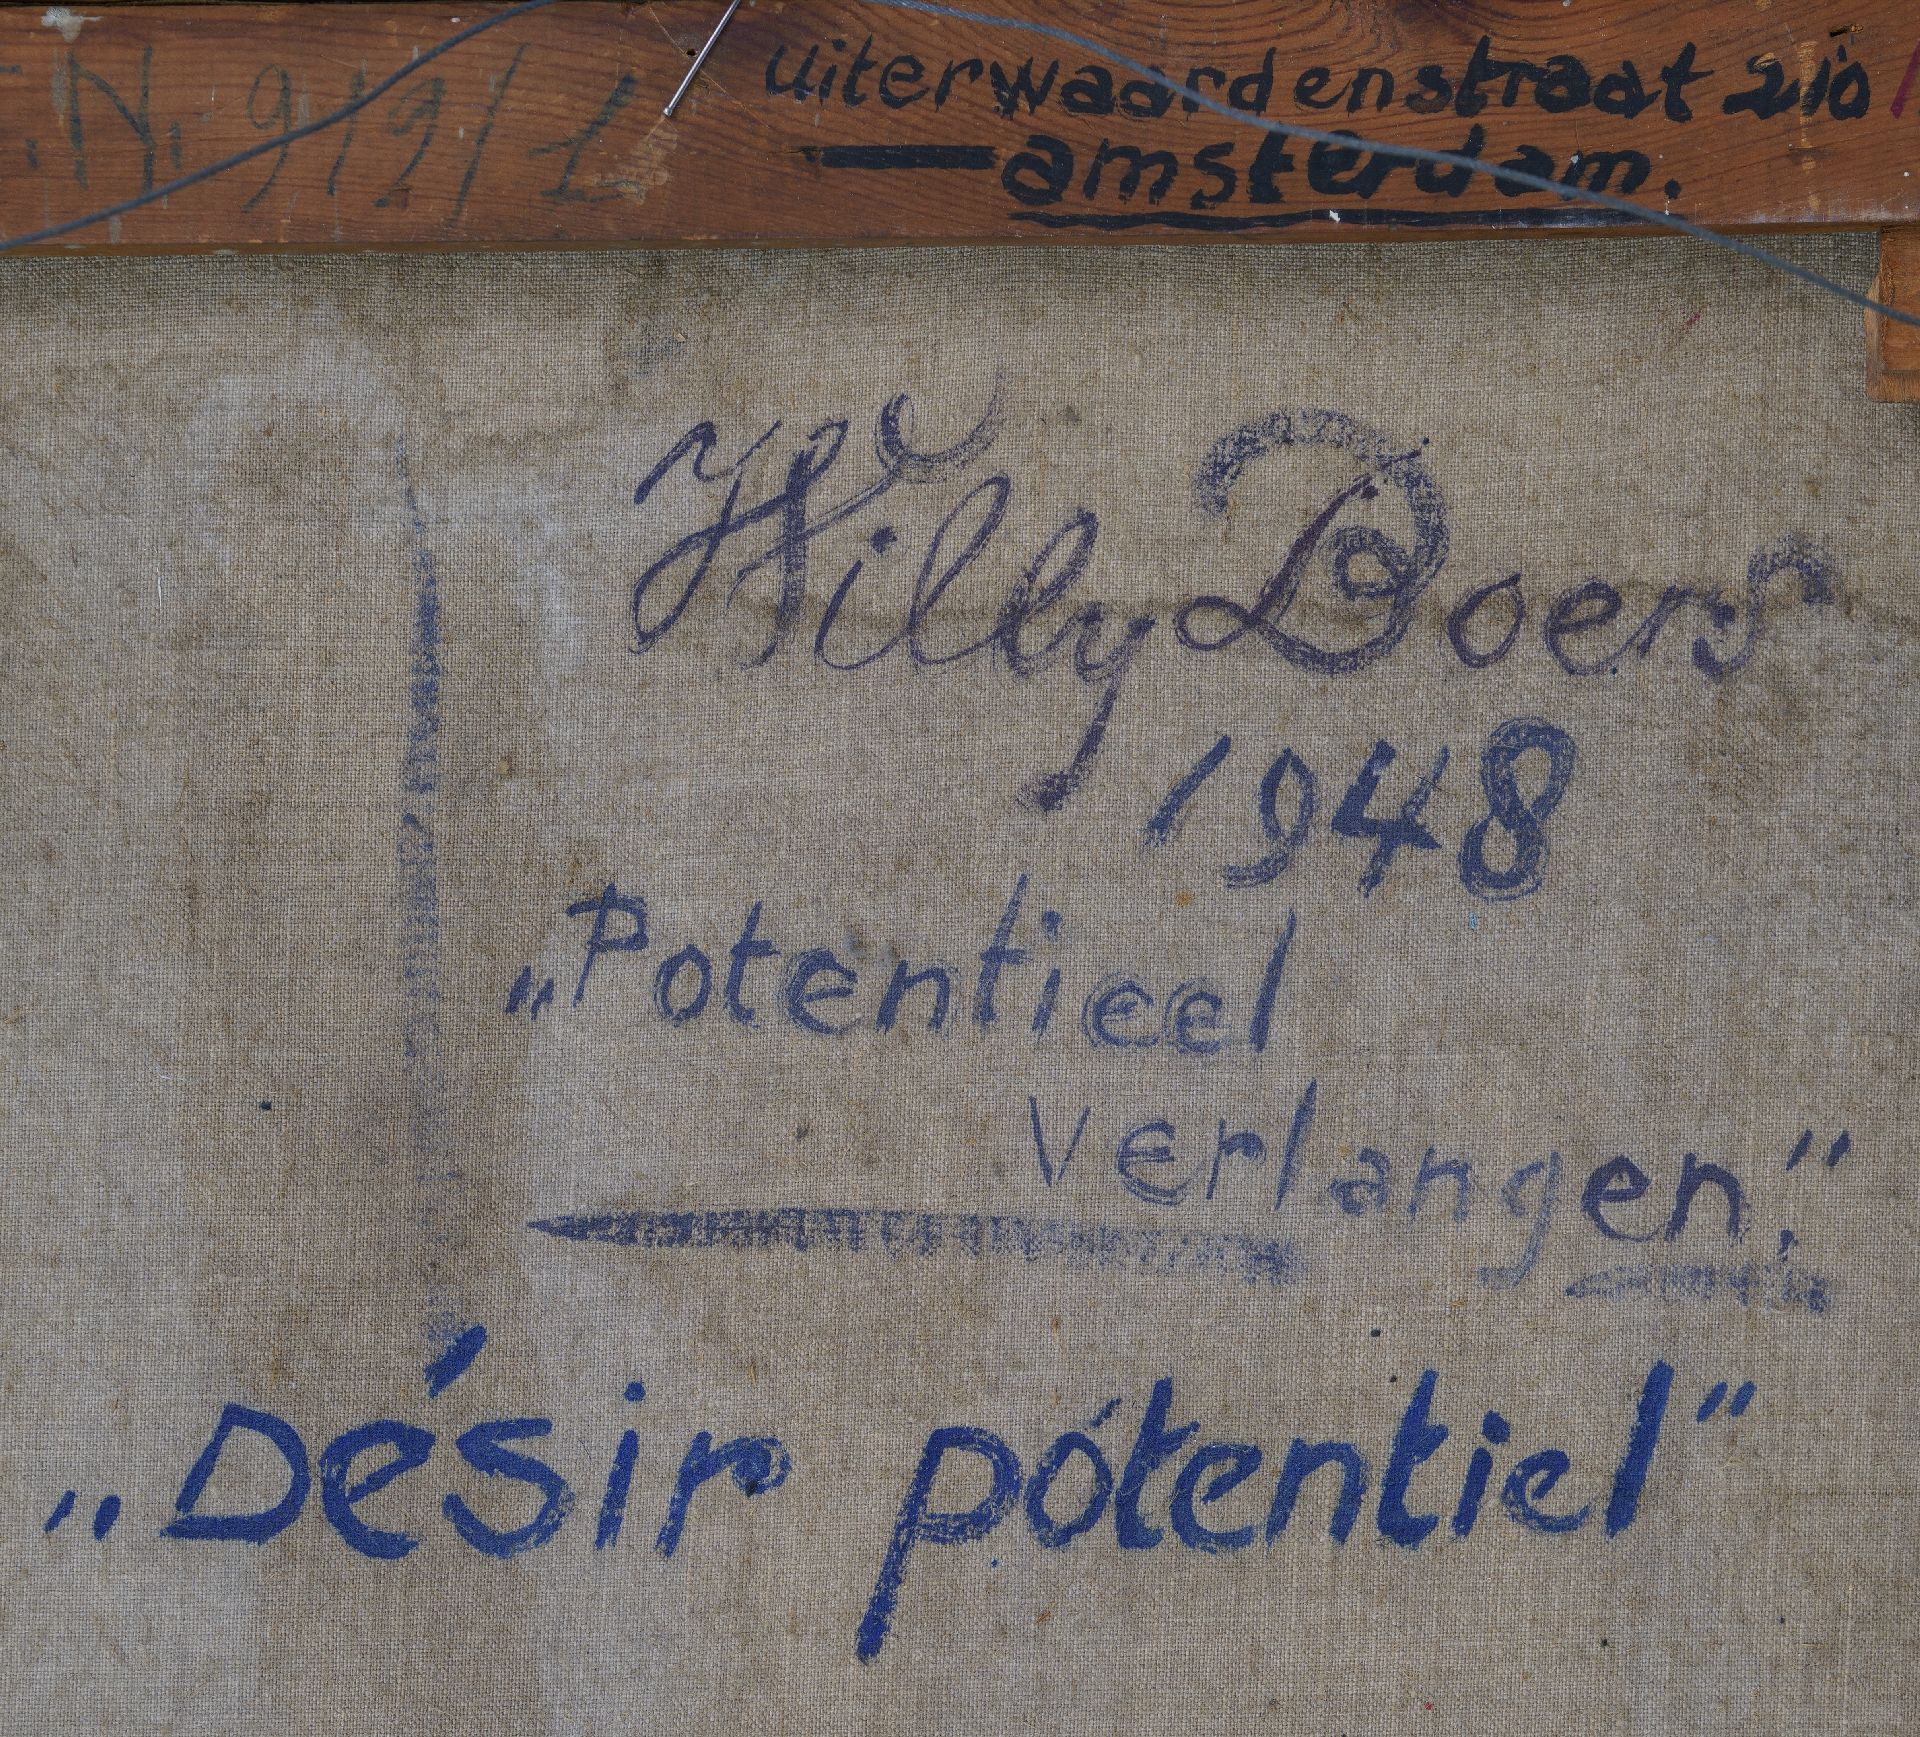 N. 919/L
uiterwaardenstraat 210
—amsterdam.
Willy Boers
1948
„Potentieel
verlangen."
„Désir pótentiel"